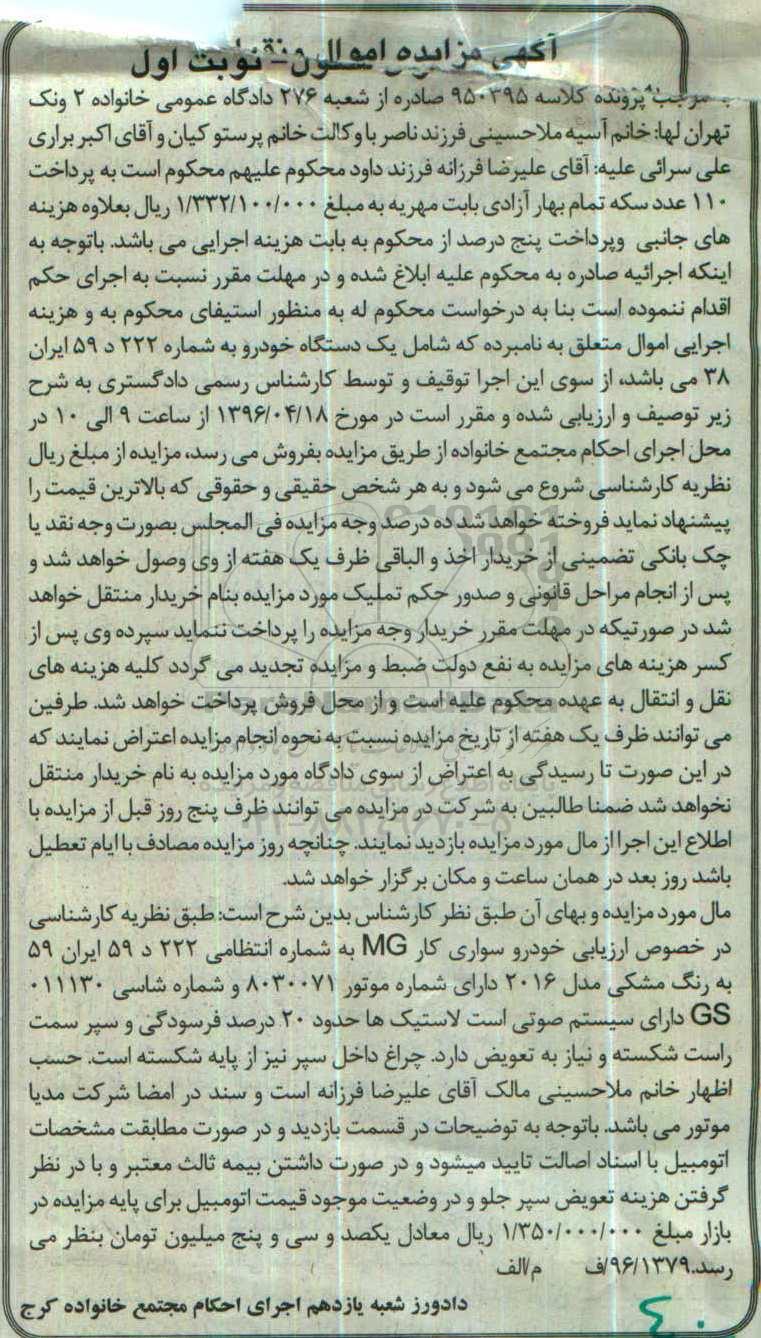 آگهی مزایده اموال
نوبت اول
پرونده کلاسه ۹۵۰۳۹۵ صادره از شعبه ۲۷۶ دادگاه عمومی خانواده ۲ ونک
تهران لها: خانم آسیه ملاحسینی فرزند ناصر با وکالت خانم پرستو کیان و آقای اکبر براری
علی سرائی علیه: آقای علیرضا فرزانه فرزند داود محکوم علیهم محکوم است به پرداخت
۱۱۰ عدد سکه تمام بهار آزادی بابت مهریه به مبلغ ۱/۳۳۲/۱۰۰/۰۰۰ ریال بعلاوه هزینه
های جانبی وپرداخت پنج درصد از محکوم به بابت هزینه اجرایی می باشد. باتوجه به
اینکه اجرائیه صادره به محکوم علیه ابلاغ شده و در مهلت مقرر نسبت به اجرای حکم
اقدام ننموده است بنا به درخواست محکوم له به منظور استیفای محکوم به و هزینه
اجرایی اموال متعلق به نامبرده که شامل یک دستگاه خودرو به شماره ۲۲۲ د ۵۹ ایران
۳۸ می باشد، از سوی این اجرا توقیف و توسط کارشناس رسمی دادگستری به شرح
زیر توصیف و ارزیابی شده و مقرر است در مورخ ۱۳۹۶/۰۴/۱۸ از ساعت ۹ الی ۱۰ در
محل اجرای احکام مجتمع خانواده از طریق مزایده بفروش می رسد، مزایده از مبلغ ریال
نظریه کارشناسی شروع می شود و به هر شخص حقیقی و حقوقی که بالاترین قیمت را
پیشنهاد نماید فروخته خواهد شد ده درصد وجه مزایده فی المجلس بصورت وجه نقد یا
چک بانکی تضمینی از خریدار اخذ و الباقی ظرف یک هفته از وی وصول خواهد شد و
پس از انجام مراحل قانونی و صدور حکم تملیک مورد مزایده بنام خریدار منتقل خواهد
شد در صورتیکه در مهلت مقرر خریدار وجه مزایده را پرداخت ننماید سپرده وی پس از
کسر هزینه های مزایده به نفع دولت ضبط و مزایده تجدید می گردد کلیه هزینه های
نقل و انتقال به عهده محکوم علیه است و از محل فروش پرداخت خواهد شد. طرفین
می توانند ظرف یک هفته از تاریخ مزایده نسبت به نحوه انجام مزایده اعتراض نمایند که
در این صورت تا رسیدگی به اعتراض از سوی دادگاه مورد مزایده به نام خریدار منتقل
نخواهد شد ضمنا طالبین به شرکت در مزایده می توانند ظرف پنج روز قبل از مزایده با
اطلاع این اجرا از مال مورد مزایده بازدید نمایند. چنانچه روز مزایده مصادف با ایام تعطیل
باشد روز بعد در همان ساعت و مکان برگزار خواهد شد.
مال مورد مزایده و بهای آن طبق نظر کارشناس بدین شرح است: طبق نظریه کارشناسی
در خصوص ارزیابی خودرو سواری کار MG به شماره انتظامی ۲۲۲ د ۵۹ ایران ۵۹
به رنگ مشکی مدل ۲۰۱۶ دارای شماره موتور ۸۰۳۰۰۷۱ و شماره شاسی ۰۱۱۱۳۰
GS دارای سیستم صوتی است لاستیک ها حدود ۲۰ درصد فرسودگی و سپر سمت
راست شکسته و نیاز به تعویض دارد. چراغ داخل سپر نیز از پایه شکسته است. حسب
اظهار خانم ملاحسینی مالک آقای علیرضا فرزانه است و سند در امضا شرکت مدیا
موتور می باشد. باتوجه به توضیحات در قسمت بازدید و در صورت مطابقت مشخصات
اتومبیل با اسناد اصالت تایید میشود و در صورت داشتن بیمه ثالث معتبر و با در نظر
گرفتن هزینه تعویض سپر جلو و در وضعیت موجود قیمت اتومبیل برای پایه مزایده در
بازار مبلغ ۱/۳۵۰/۰۰۰/۰۰۰ ریال معادل یکصد و سی و پنج میلیون تومان بنظر می
رسد.۹۶/۱۳۷۹/ف م/الف
دادورز شعبه یازدهم اجرای احکام مجتمع خانواده کرج
۴۰